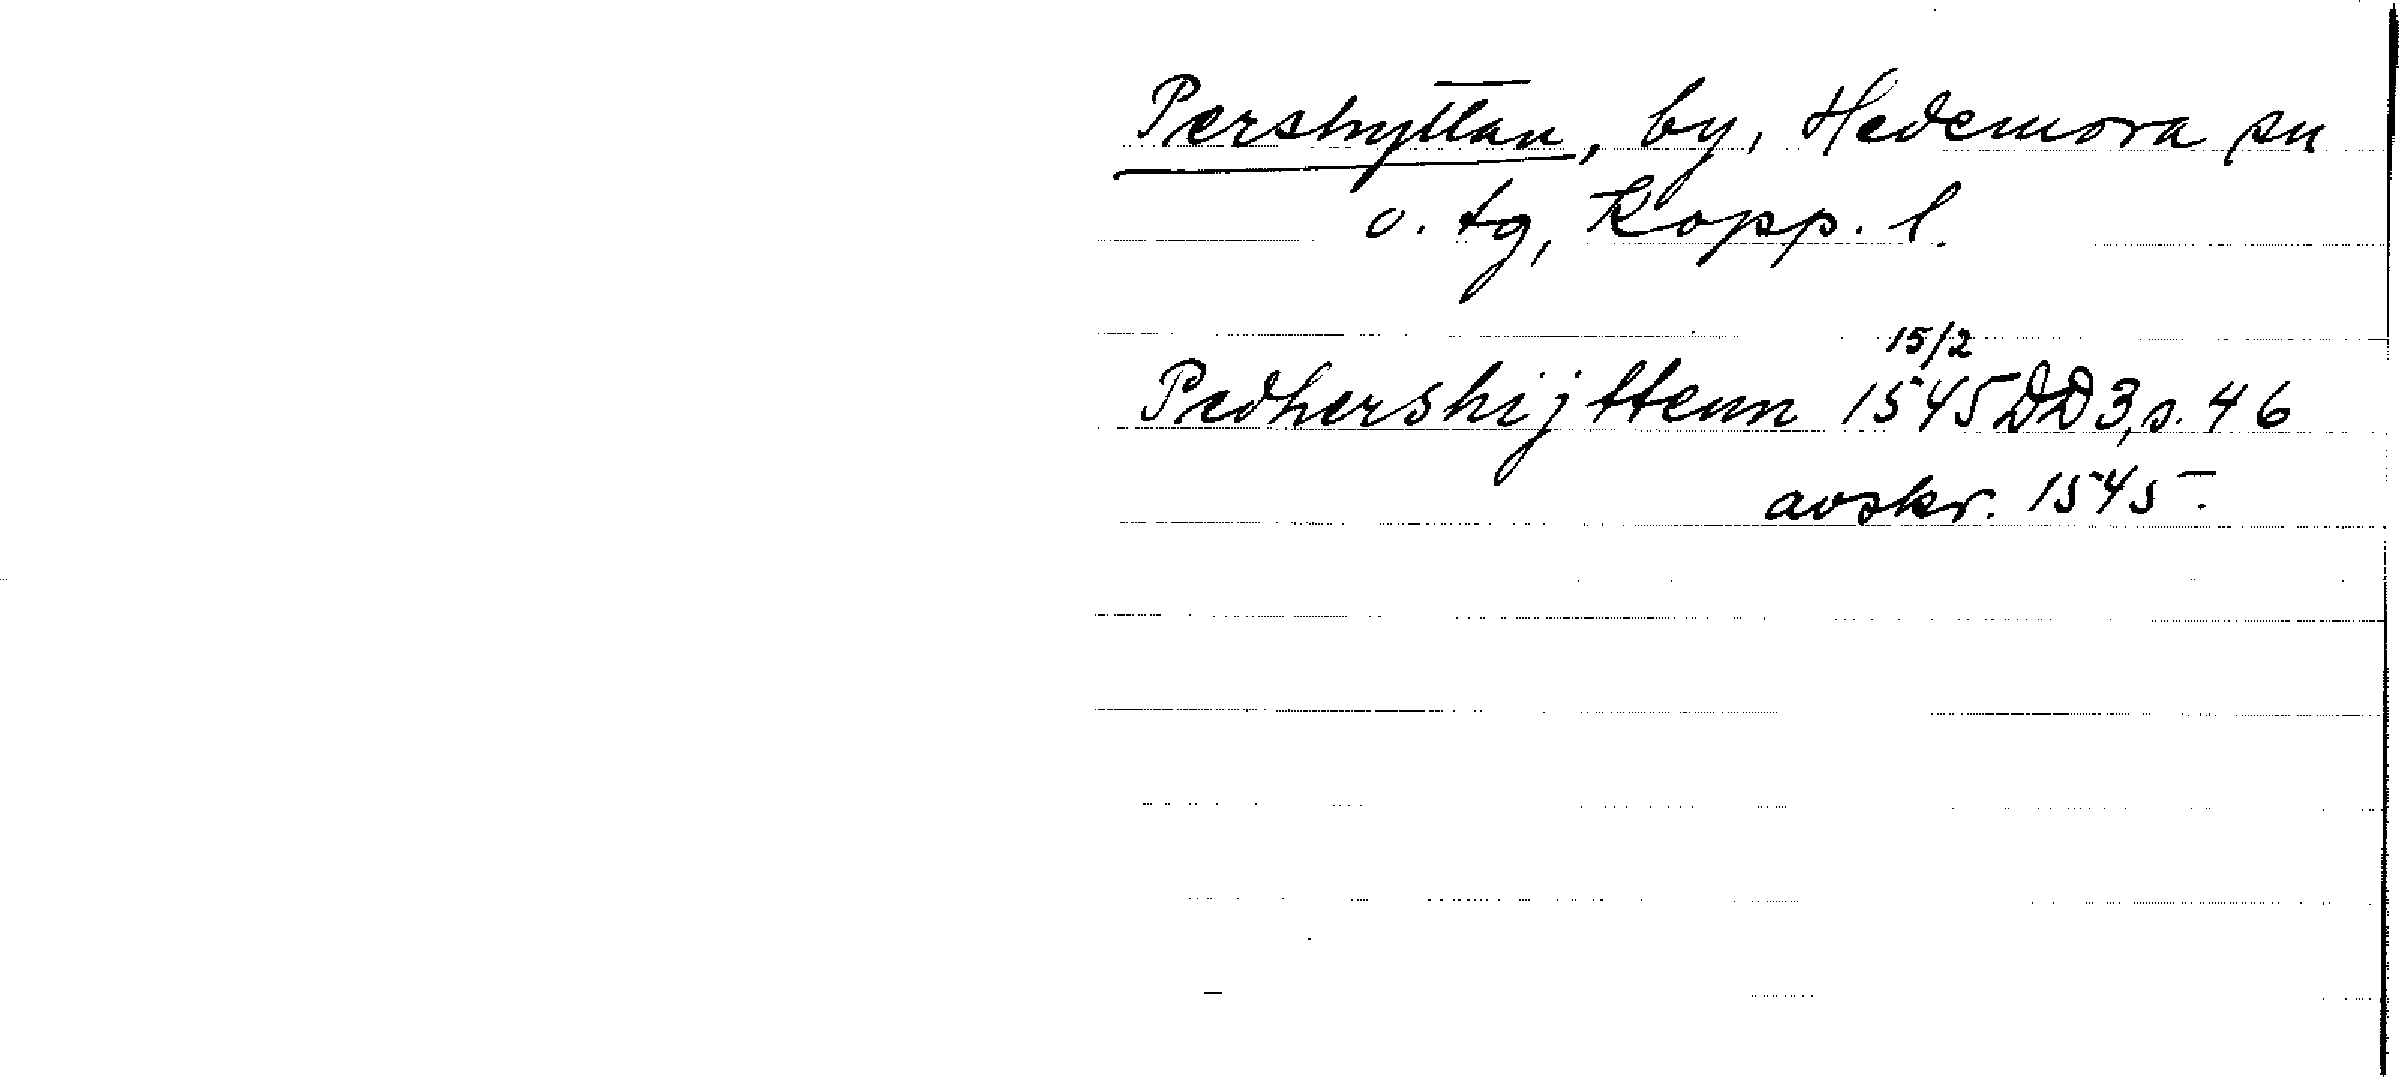 Pershyttan, by, Hedemora sn
o. tg, Kopp. l.
15/2
Pedhershijttenn 1545 DD 3, s. 46
avskr. 1545.